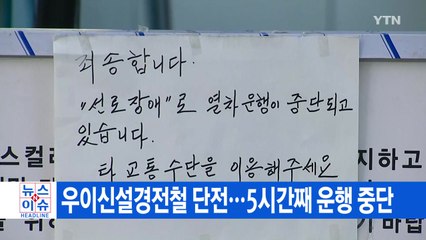 YTN
죄송합니다.
"선로장애"로 열차운행이 중단되고
있습니다.
타 교통수단을 이용해주세요
스컬러
지하고
뉴스
이슈
HEADLINE
우이신설경전철 단전…5시간째 운행 중단
바랍